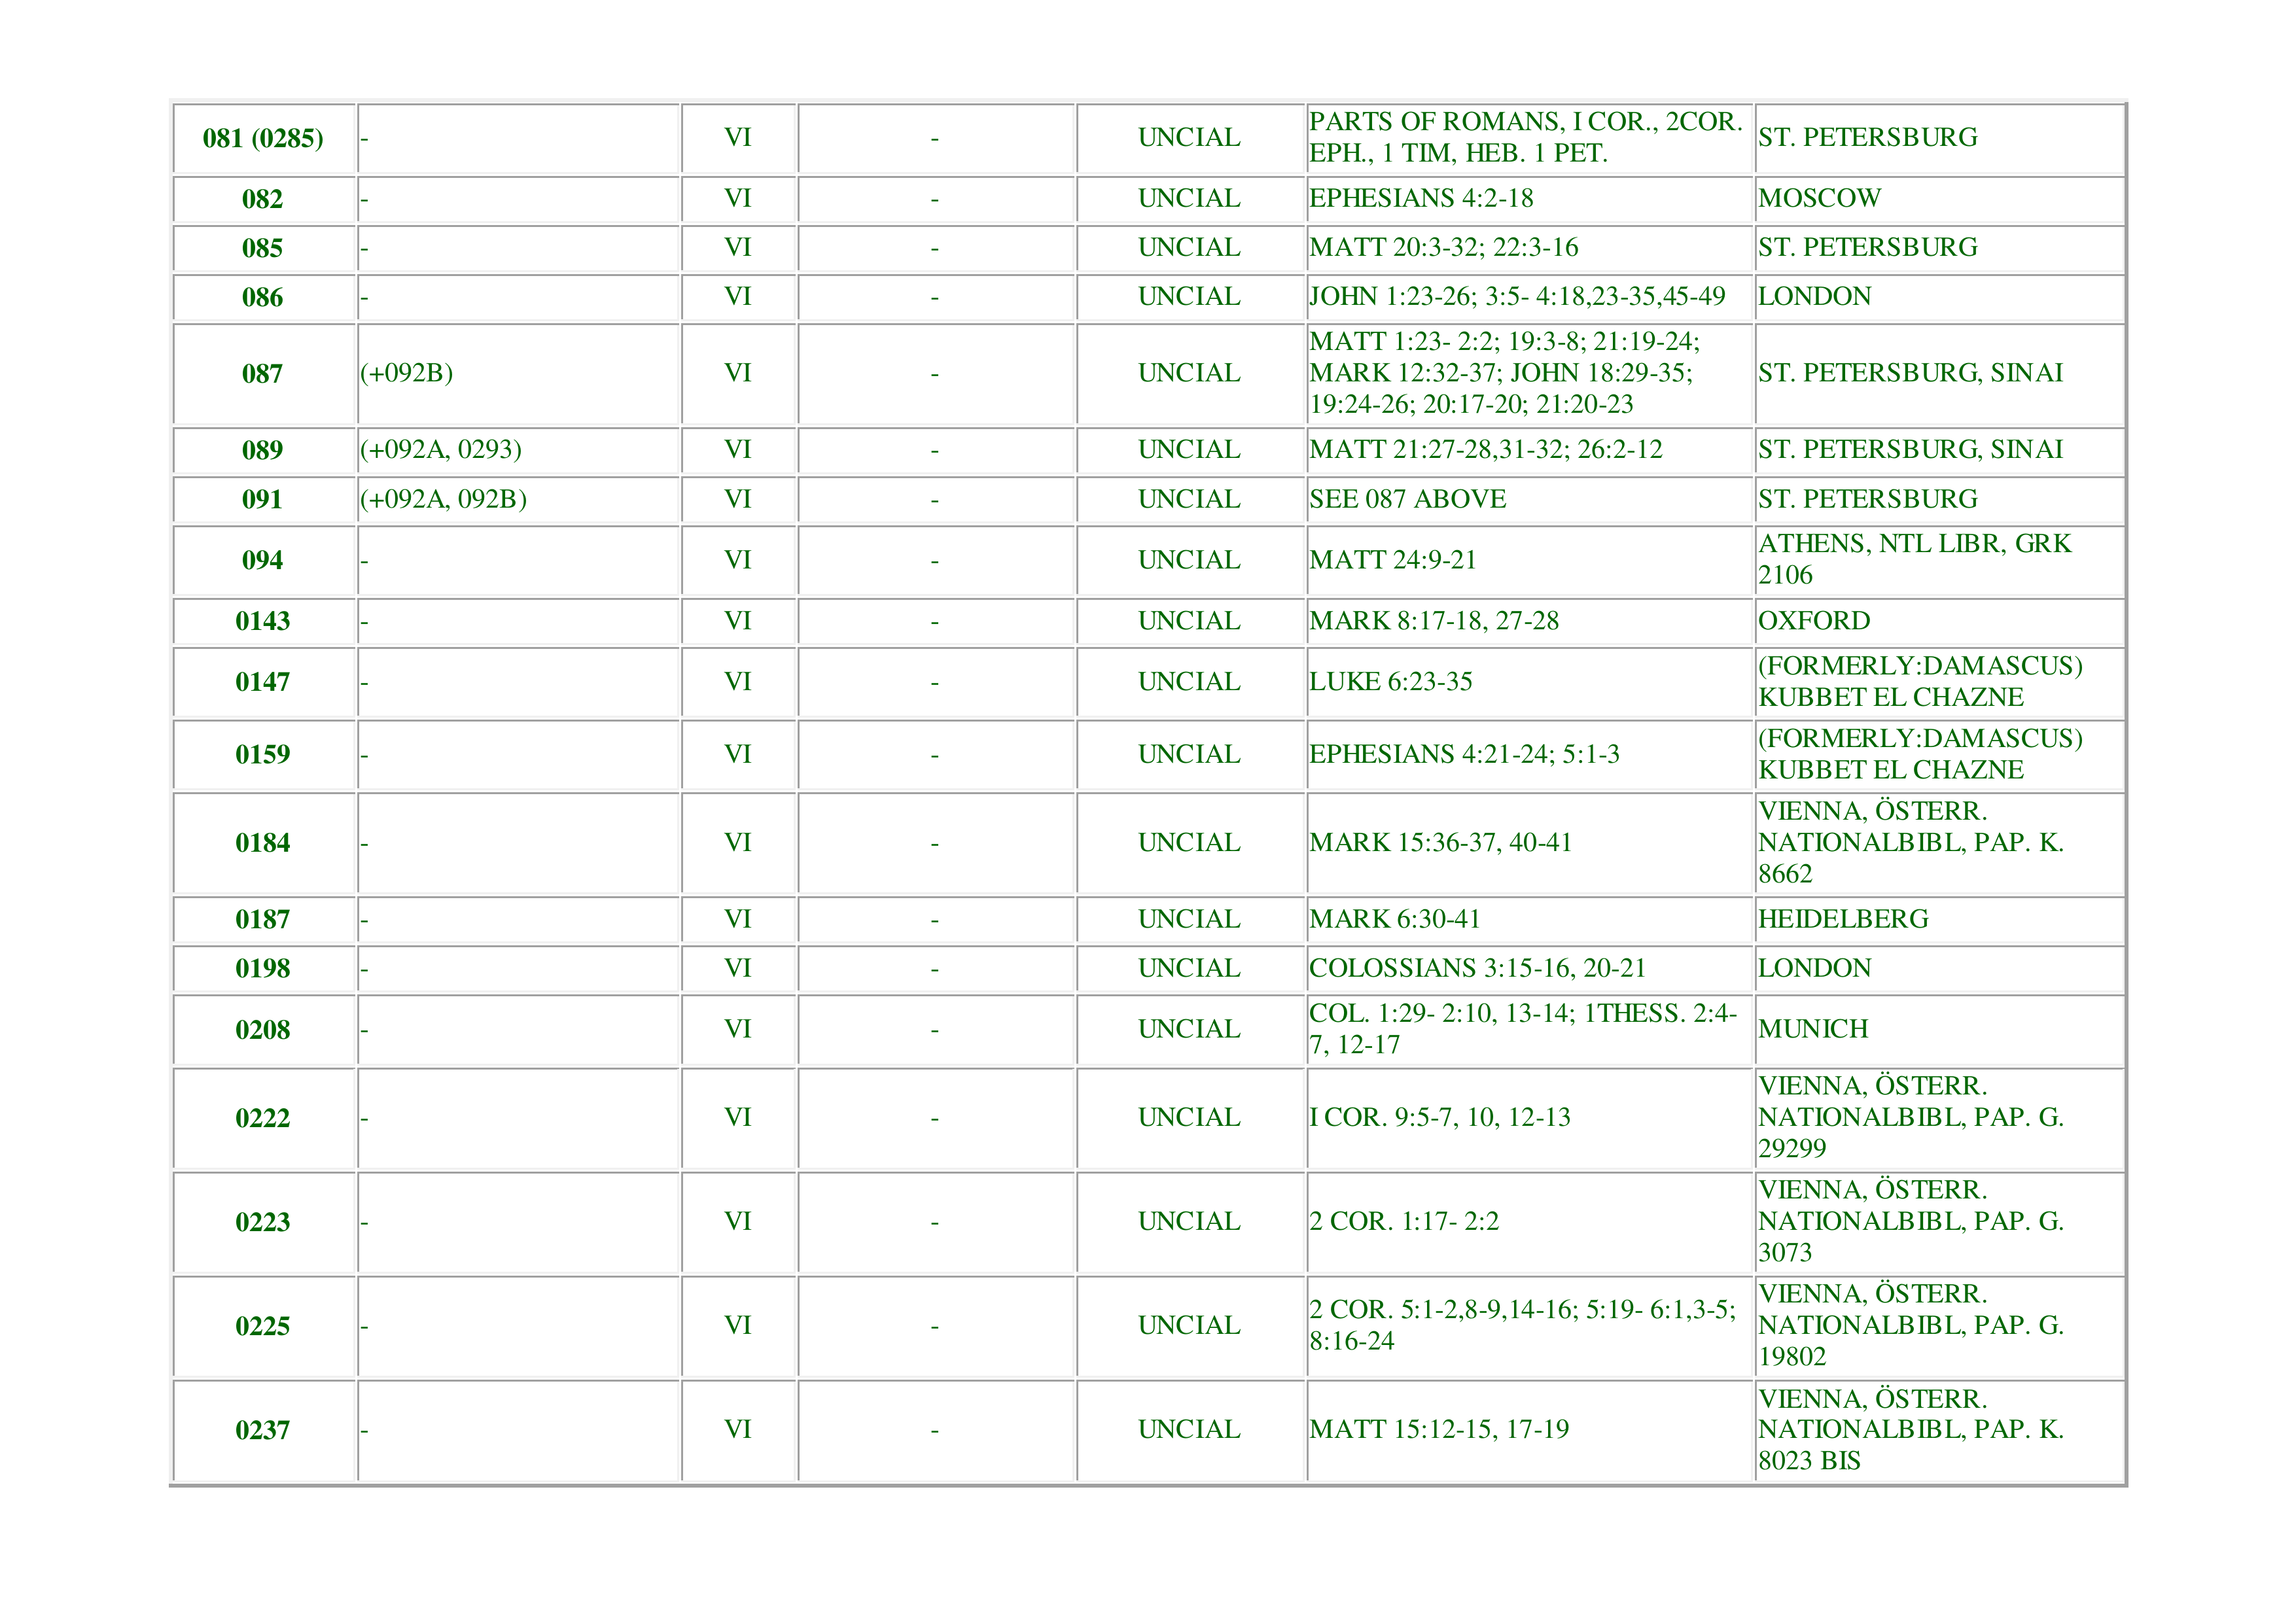 081 (0285) - VI - UNCIAL PARTS OF ROMANS, I COR., 2COR. EPH., 1 TIM, HEB. 1 PET. ST. PETERSBURG
082 - VI - UNCIAL EPHESIANS 4:2-18 MOSCOW
085 - VI - UNCIAL MATT 20:3-32; 22:3-16 ST. PETERSBURG
086 - VI - UNCIAL JOHN 1:23-26; 3:5- 4:18,23-35,45-49 LONDON
087 (+092B) VI - UNCIAL MATT 1:23- 2:2; 19:3-8; 21:19-24; MARK 12:32-37; JOHN 18:29-35; 19:24-26; 20:17-20; 21:20-23 ST. PETERSBURG, SINAI
089 (+092A, 0293) VI - UNCIAL MATT 21:27-28,31-32; 26:2-12 ST. PETERSBURG, SINAI
091 (+092A, 092B) VI - UNCIAL SEE 087 ABOVE ST. PETERSBURG
094 - VI - UNCIAL MATT 24:9-21 ATHENS, NTL LIBR, GRK 2106
0143 - VI - UNCIAL MARK 8:17-18, 27-28 OXFORD
0147 - VI - UNCIAL LUKE 6:23-35 (FORMERLY:DAMASCUS) KUBBET EL CHAZNE
0159 - VI - UNCIAL EPHESIANS 4:21-24; 5:1-3 (FORMERLY:DAMASCUS) KUBBET EL CHAZNE
0184 - VI - UNCIAL MARK 15:36-37, 40-41 VIENNA, ÖSTERR. NATIONALBIBL, PAP. K. 8662
0187 - VI - UNCIAL MARK 6:30-41 HEIDELBERG
0198 - VI - UNCIAL COLOSSIANS 3:15-16, 20-21 LONDON
0208 - VI - UNCIAL COL. 1:29- 2:10, 13-14; 1THESS. 2:4-7, 12-17 MUNICH
0222 - VI - UNCIAL I COR. 9:5-7, 10, 12-13 VIENNA, ÖSTERR. NATIONALBIBL, PAP. G. 29299
0223 - VI - UNCIAL 2 COR. 1:17- 2:2 VIENNA, ÖSTERR. NATIONALBIBL, PAP. G. 3073
0225 - VI - UNCIAL 2 COR. 5:1-2,8-9,14-16; 5:19- 6:1,3-5; 8:16-24 VIENNA, ÖSTERR. NATIONALBIBL, PAP. G. 19802
0237 - VI - UNCIAL MATT 15:12-15, 17-19 VIENNA, ÖSTERR. NATIONALBIBL, PAP. K. 8023 BIS